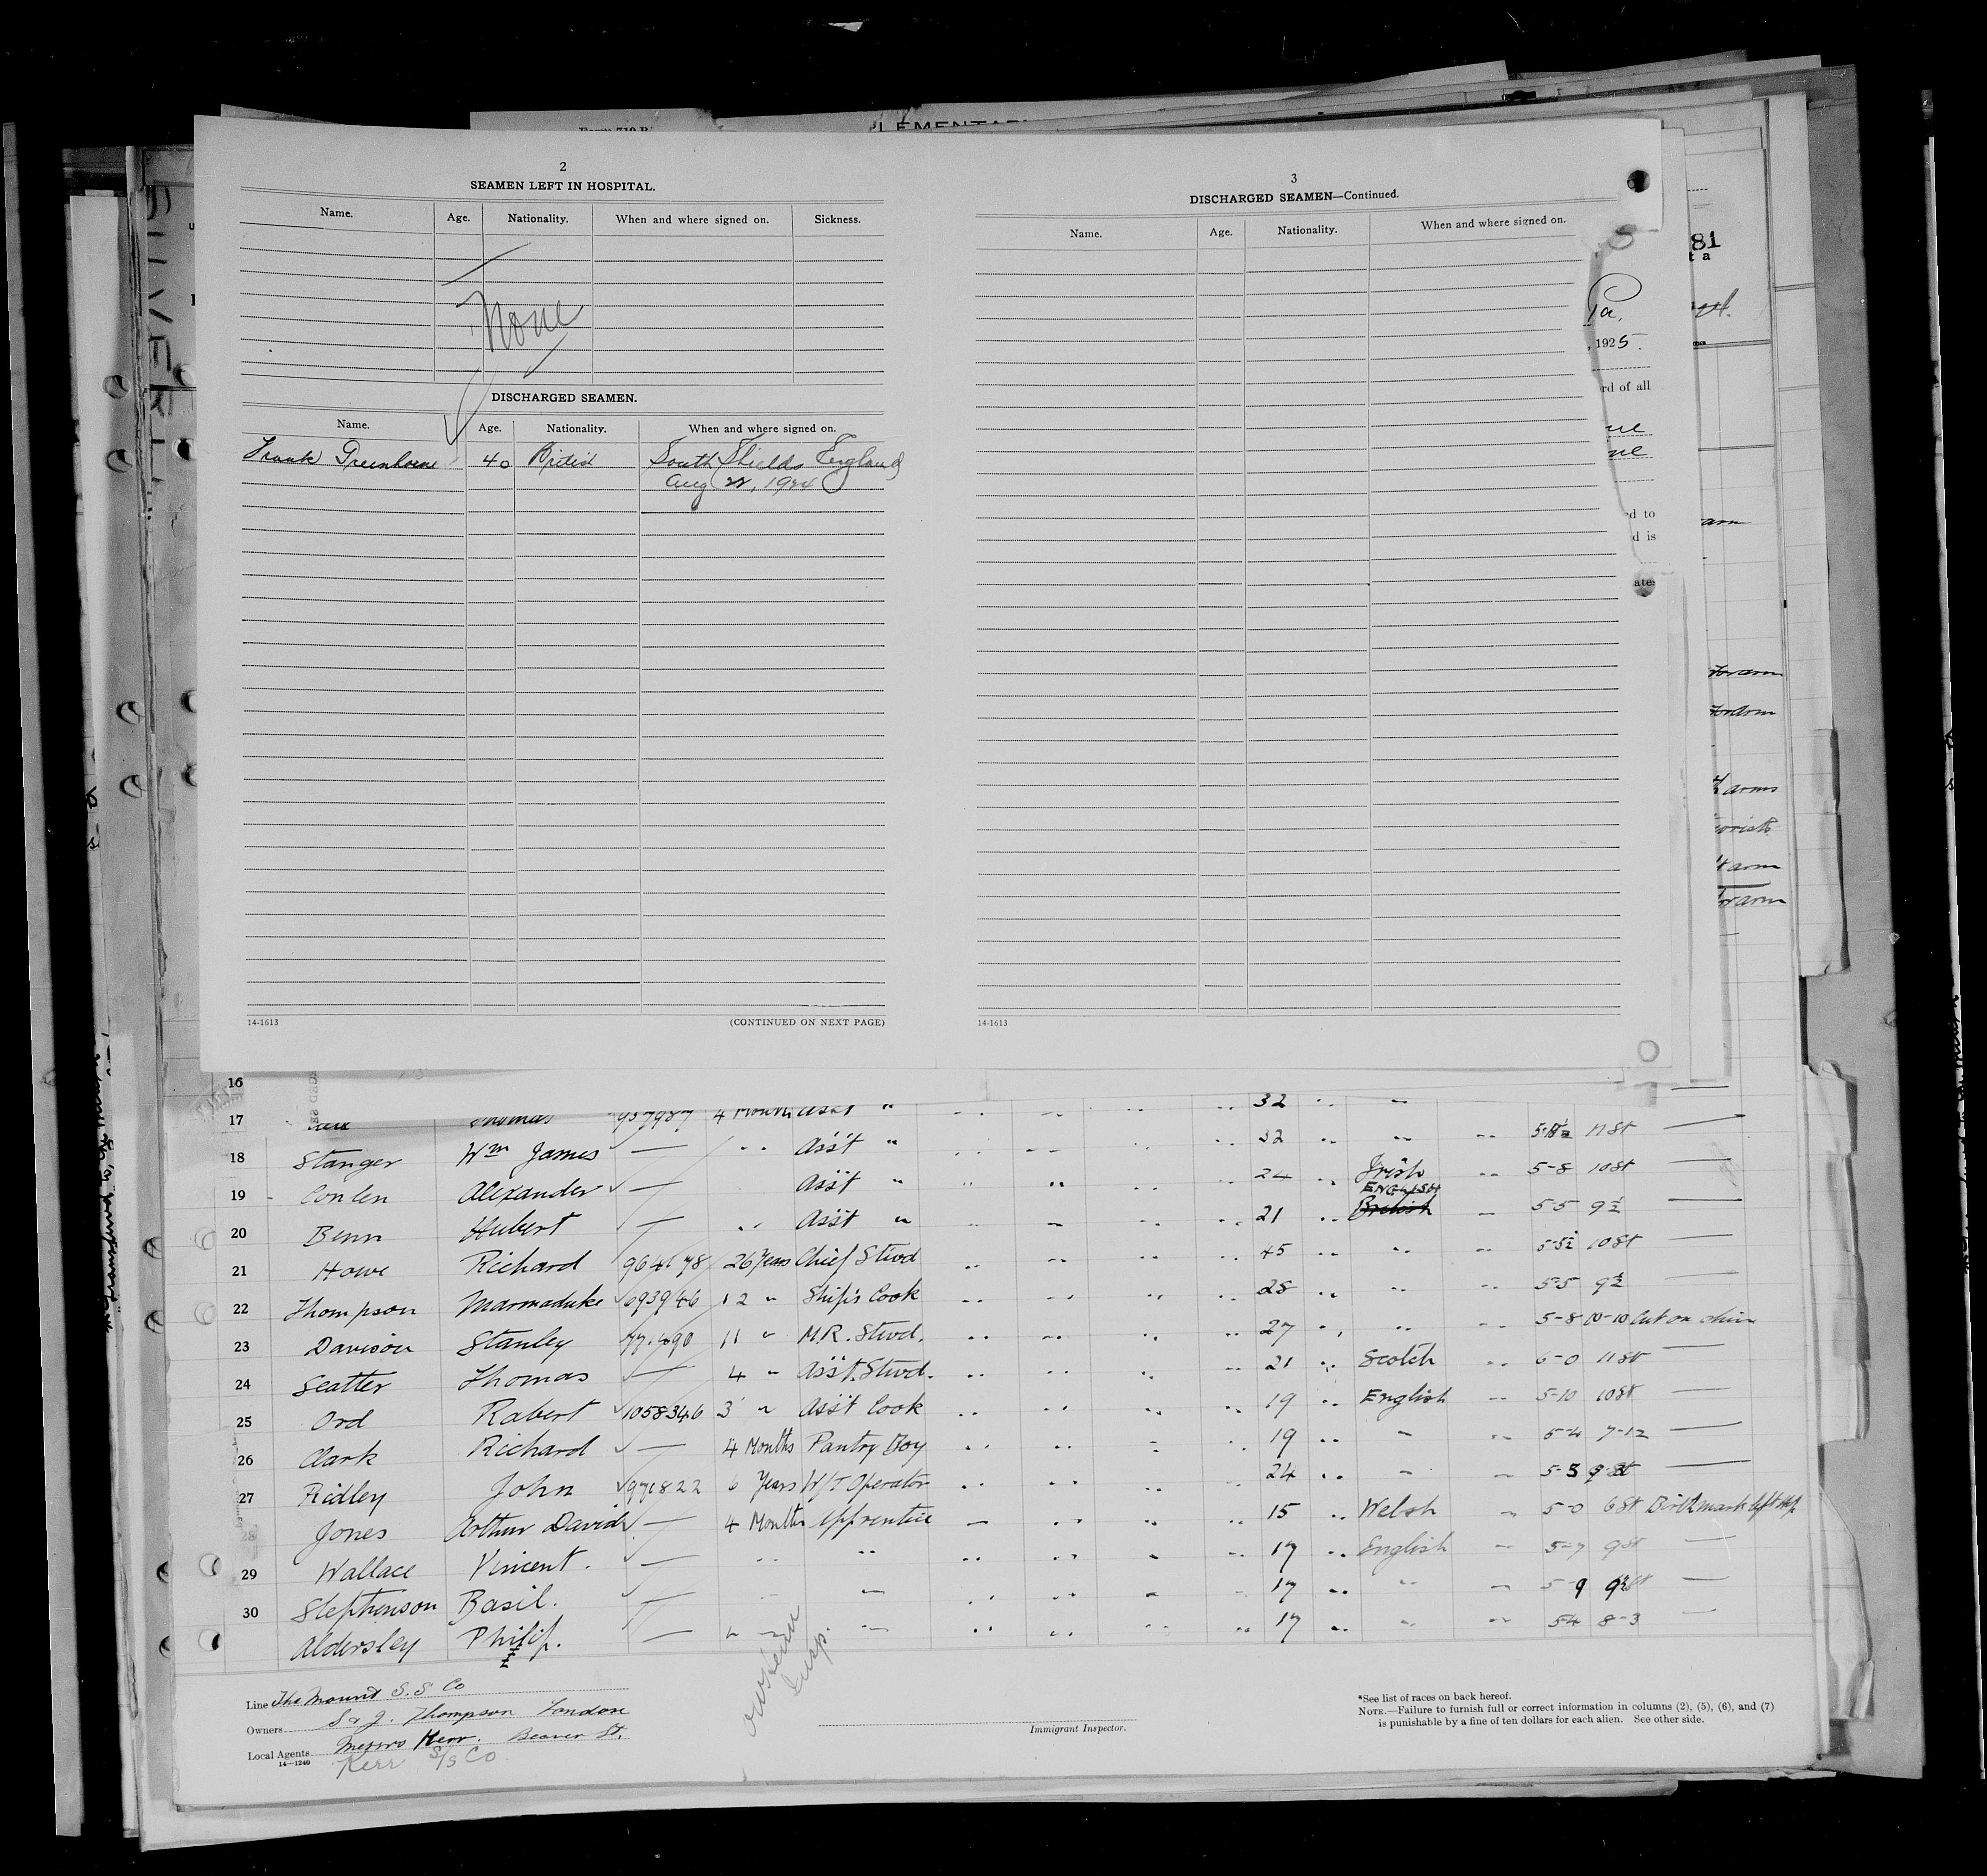 2
SEAMEN LEFT IN HOSPITAL.
Name. Age. Nationality. When and where signed on. Sickness.
None
DISCHARGED SEAMEN.
Name. Age. Nationality. When and where signed on.
Frank 40 British South Shields England
Aug 22, 1924
14-1613 (CONTINUED ON NEXT PAGE)
3
DISCHARGED SEAMEN—Continued.
Name. Age. Nationality. When and where signed on.
14-1613
81
t a
Pa.
, 1925.
rd of all
ne
ne
ed to
d is
ate
arm
forarm
forarm
arms
arm
forarm
16
17 Thomas 937987 4 Months Asst " 32
18 Stanger Wm James — Ass't " 32 11 St —
19 Conlen Alexander — Ass't " 24 Irish 5-8 10 St —
20 Benn Hubert — Ass't " 21 ENGLISH British 5-5 9½ —
21 Howe Richard 964178 26 Years Chief Stwd 45 5-5½ 10 St —
22 Thompson Marmaduke 693946 12 " Ship's Cook 28 5-5 9½ —
23 Davison Stanley 771490 11 " M.R. Stwd. 27 5-8 10-10 Cut on chin
24 Seatter Thomas — 4 " Ass't. Stwd. 21 Scotch 6-0 11 St —
25 Ord Robert 1058346 3 " Ass't Cook 19 English 5-10 10 St —
26 Clark Richard — 4 Months Pantry Boy 19 " 5-4 7-12 —
27 Ridley John 971822 6 Years W/T Operator 24 " 5-5 —
28 Jones Arthur David — 4 Months Apprentice 15 Welsh 5-0 6 St Birthmark left
29 Wallace Vincent. — 17 English 5-7 9 St —
30 Stephenson Basil. — 17 5-9 —
Aldersley Philip. — 17 5-4 8-3 —
Line The Mount S.S Co
Owners S & J. Thompson London
Local Agents Messrs Kerr. Beaver St.
14-1240 Kerr S/S Co.
Insp.
Immigrant Inspector.
*See list of races on back hereof.
NOTE.—Failure to furnish full or correct information in columns (2), (5), (6), and (7)
is punishable by a fine of ten dollars for each alien. See other side.